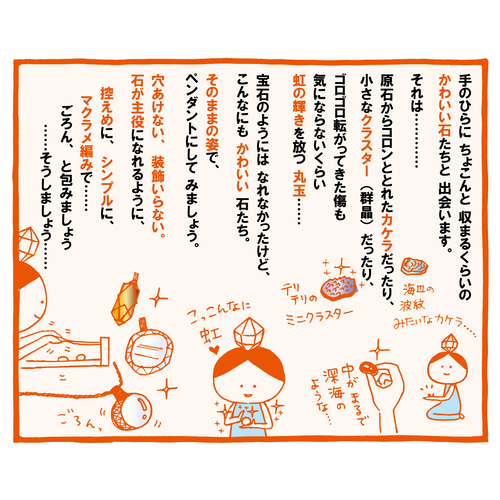 手のひらに ちょこんと 収まるくらいの
かわいい石たちと 出会います。
それは…………
原石からコロンととれたカケラだったり、
小さなクラスター（群晶）だったり、
ゴロゴロ転がってきた傷も
気にならないくらい
虹の輝きを放つ 丸玉……
宝石のようには なれなかったけど、
こんなにも かわいい 石たち。
そのままの姿で、
ペンダントにして みましょう。
穴あけない、装飾いらない。
石が主役になれるように、
控えめに、シンプルに、
マクラメ編みで……
ごろん、と包みましょう
……そうしましょう……
海皿の
波紋
みたいなカケラ…
テリ
テリの
ミニクラスター
こっこんなに
虹
中がまるで
深海の
ような…
ごろんっ